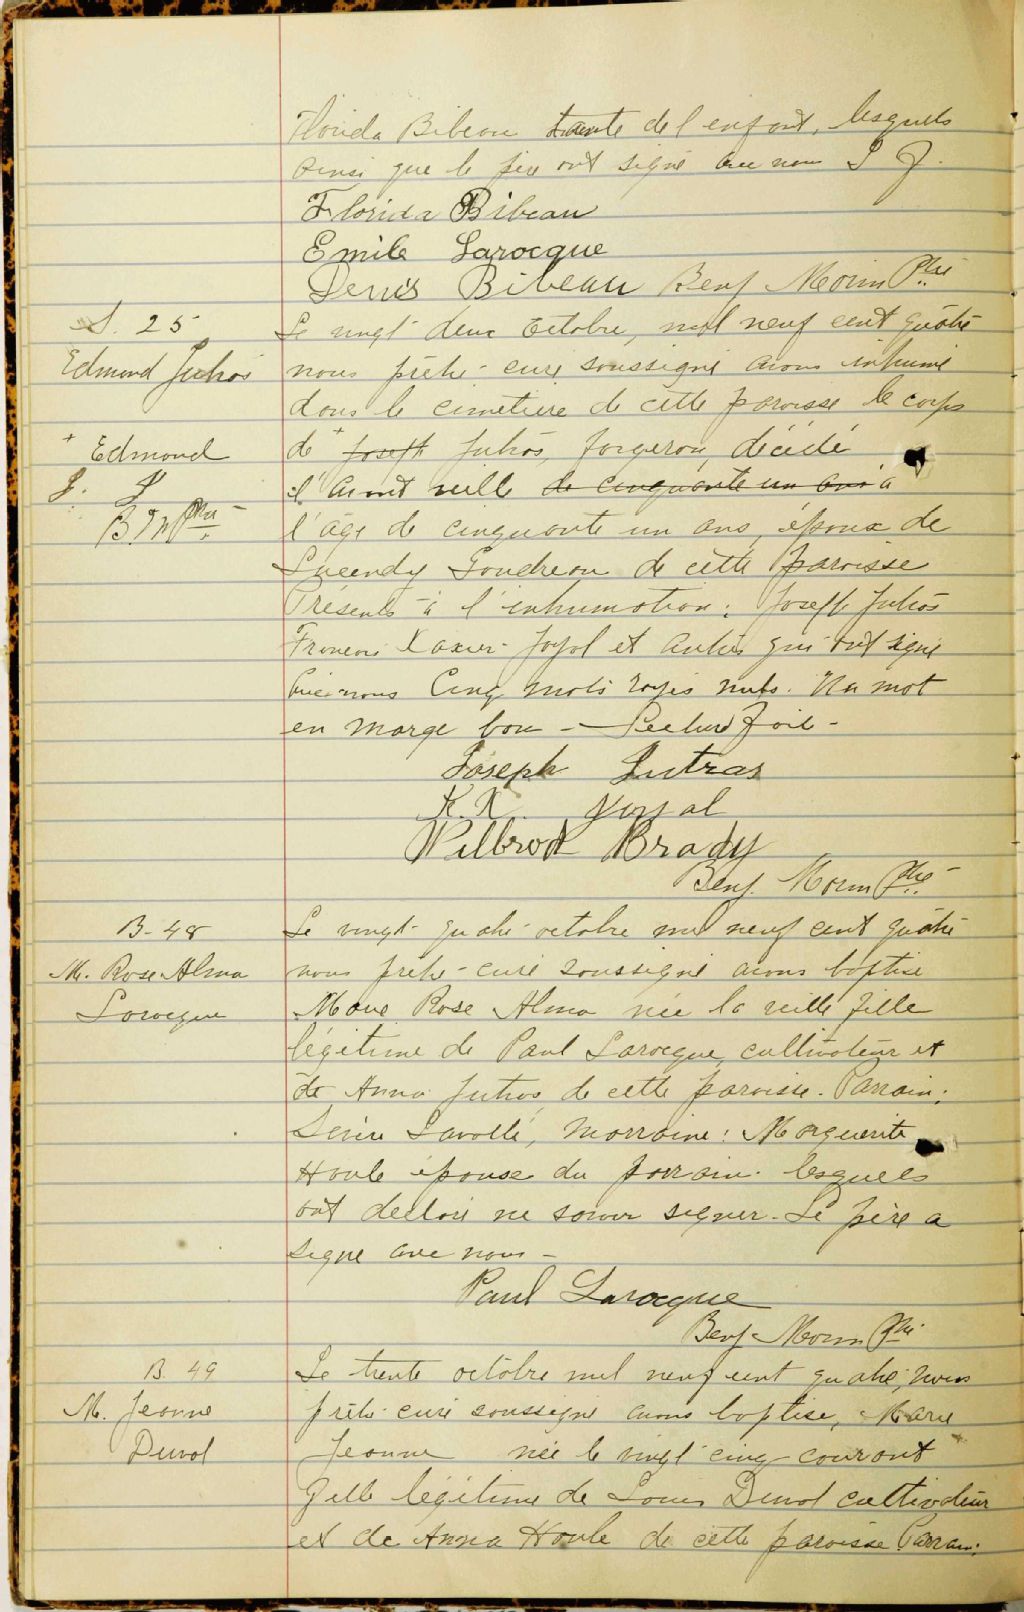 Florida Bibeau tante de l'enfant, lesquels
ainsi que le père ont signé avec nous L F.
Florida Bibeau
Emile Larocque
Denis Bibeau Benj Morin Ptre
S. 25
Edmond Jutras
Le vingt deux Octobre, mil neuf cent quatre
nous prêtre-curé soussigné avons inhumé
dans le cimetière de cette paroisse le corps
+ Edmond
de + Joseph Jutras, forgeron, décédé
B. M Ptre
l'avant veille de cinquante un ans à
l'âge de cinquante un ans, époux de
Goudreau de cette paroisse
Présents à l'inhumation: Joseph Jutras
Francois Xavier Joyal et autres qui ont signé
avec nous Cinq mots rayés nuls. Un mot
en marge bon - Lecture faite -
Joseph Jutras
F. X. Joyal
Wilbrod Brady
Benj. Morin Ptre
B-48
M. Rose Alma
Larocque
Le vingt-quatre octobre mil neuf cent quatre
nous prêtre-curé soussigné avons baptisé
Marie Rose Alma née la veille fille
légitime de Paul Larocque, cultivateur et
de Anna Jutras de cette paroisse. Parrain:
Sévère Lavallé, marraine: Marguerite
Houle épouse du parrain lesquels
ont déclaré ne savoir signer. Le père a
signé avec nous -
Paul Larocque
Benj Morin Ptre
B. 49
M. Jeanne
Duval
Le trente octobre mil neuf cent quatre, nous
prêtre curé soussigné avons baptisé, Marie
Jeanne née le vingt cinq courant
fille légitime de Louis Duval cultivateur
et de Anna Houle de cette paroisse Parrain: